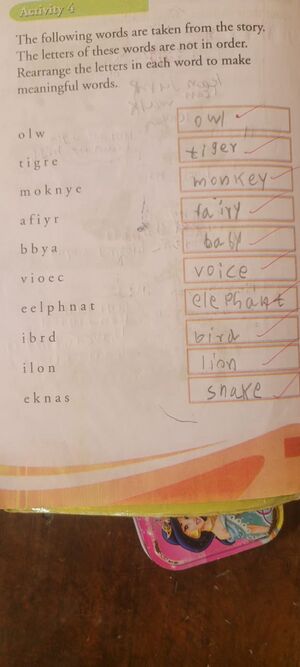 Activity 4
The following words are taken from the story.
The letters of these words are not in order.
Rearrange the letters in each word to make
meaningful words.
olw owl
tigre tiger
moknye monkey
afiyr fairy
bbya baby
vioec voice
eelphnat elephant
ibrd bird
ilon lion
eknas snake